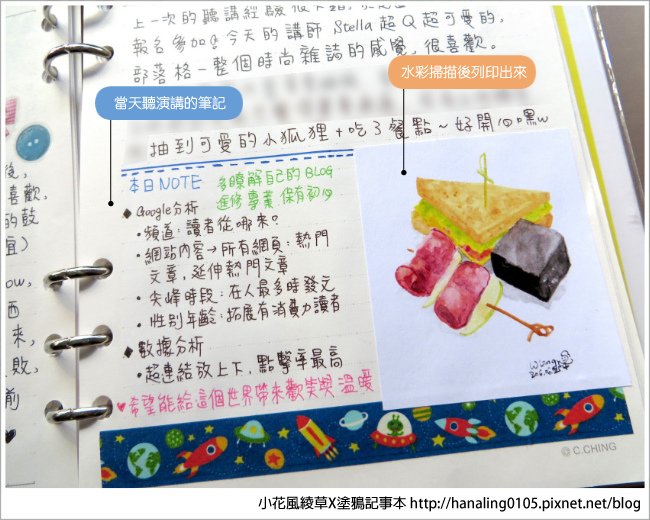 上一次的聽講經驗很不錯,
報名參加@今天的講師 Stella 超Q超可愛的,
部落格一整個時尚雜誌的感覺,很喜歡。
水彩掃描後列印出來
當天聽演講的筆記
抽到可愛的小狐狸+吃了餐點~好開心嘿w
本日NOTE
多瞭解自己的BLOG
進修專業 保有初心
◆Google分析
•頻道:讀者從哪來?
•網站內容→所有網頁:熱門
文章,延伸熱門文章
•尖峰時段:在人最多時發文
•性別年齡:拓展有消費力讀者
◆數據分析
•超連結放上下,點擊率最高
♥希望能給這個世界帶來歡笑與溫暖
後,
喜歡,
的鼓
宜)
ow,
西
來,
敗,
前
© C.CHING
小花風綾草X塗鴉記事本 http://hanaling0105.pixnet.net/blog